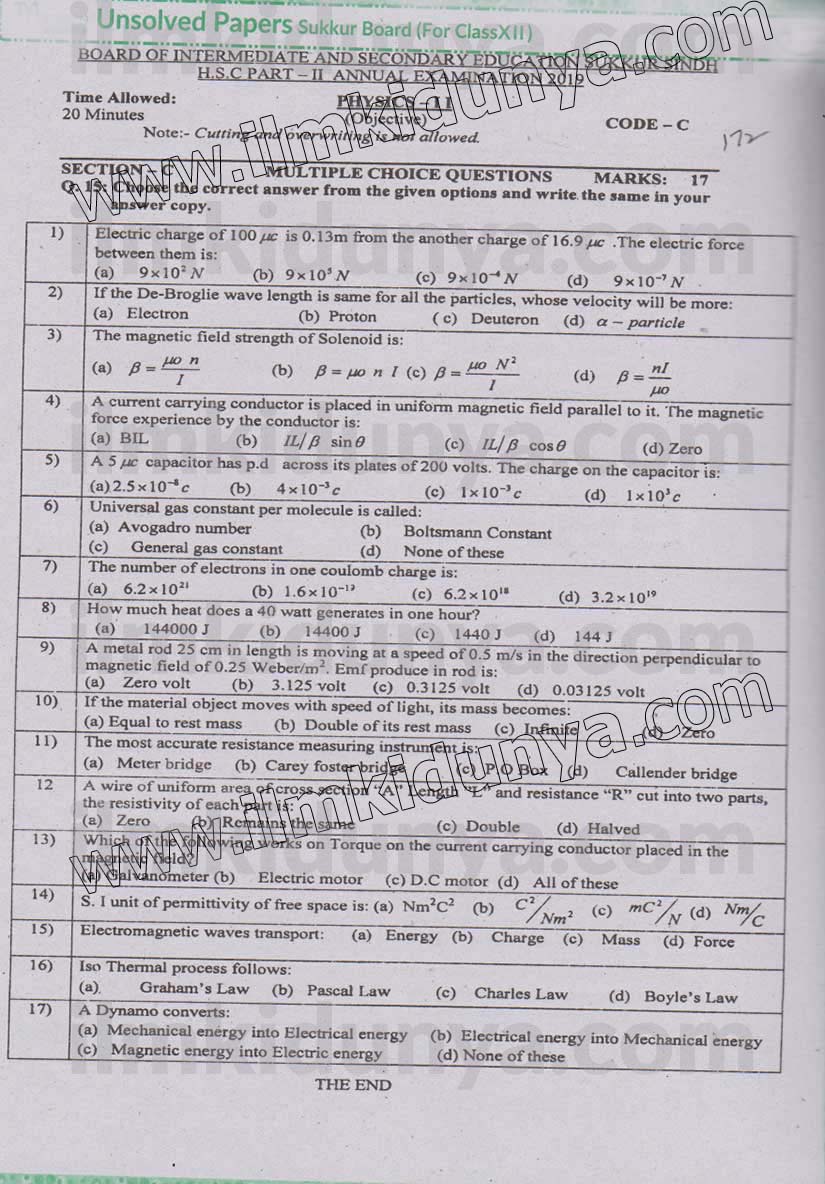 Unsolved Papers Sukkur Board (For ClassXII)
BOARD OF INTERMEDIATE AND SECONDARY EDUCATION SUKKUR SINDH
H.S.C PART – II ANNUAL EXAMINATION 2019
Time Allowed:
PHYSICS – II
20 Minutes
(Objective)
CODE – C
172
Note:- Cutting and overwriting is not allowed.
SECTION – C MULTIPLE CHOICE QUESTIONS MARKS: 17
Q. 15: Choose the correct answer from the given options and write the same in your
answer copy.
1) Electric charge of 100 μc is 0.13m from the another charge of 16.9 μc .The electric force
between them is:
(a) 9×10² N (b) 9×10⁵ N (c) 9×10⁻⁴ N (d) 9×10⁻⁷ N
2) If the De-Broglie wave length is same for all the particles, whose velocity will be more:
(a) Electron (b) Proton ( c) Deuteron (d) α – particle
3) The magnetic field strength of Solenoid is:
(a) β = μo n / I (b) β = μo n I (c) β = μo N² / I (d) β = nI / μo
4) A current carrying conductor is placed in uniform magnetic field parallel to it. The magnetic
force experience by the conductor is:
(a) BIL (b) IL/β sinθ (c) IL/β cosθ (d) Zero
5) A 5 μc capacitor has p.d across its plates of 200 volts. The charge on the capacitor is:
(a) 2.5×10⁻⁸ c (b) 4×10⁻³ c (c) 1×10⁻³ c (d) 1×10³ c
6) Universal gas constant per molecule is called:
(a) Avogadro number (b) Boltsmann Constant
(c) General gas constant (d) None of these
7) The number of electrons in one coulomb charge is:
(a) 6.2×10²¹ (b) 1.6×10⁻¹⁹ (c) 6.2×10¹⁸ (d) 3.2×10¹⁹
8) How much heat does a 40 watt generates in one hour?
(a) 144000 J (b) 14400 J (c) 1440 J (d) 144 J
9) A metal rod 25 cm in length is moving at a speed of 0.5 m/s in the direction perpendicular to
magnetic field of 0.25 Weber/m². Emf produce in rod is:
(a) Zero volt (b) 3.125 volt (c) 0.3125 volt (d) 0.03125 volt
10) If the material object moves with speed of light, its mass becomes:
(a) Equal to rest mass (b) Double of its rest mass (c) Infinite (d) Zero
11) The most accurate resistance measuring instrument is:
(a) Meter bridge (b) Carey foster bridge (c) P.O Box (d) Callender bridge
12 A wire of uniform area of cross section "A" Length "L" and resistance "R" cut into two parts,
the resistivity of each part is:
(a) Zero (b) Remains the same (c) Double (d) Halved
13) Which of the following works on Torque on the current carrying conductor placed in the
magnetic field?
(a) Galvanometer (b) Electric motor (c) D.C motor (d) All of these
14) S. I unit of permittivity of free space is: (a) Nm²C² (b) C²/Nm² (c) mC²/N (d) Nm/C
15) Electromagnetic waves transport: (a) Energy (b) Charge (c) Mass (d) Force
16) Iso Thermal process follows:
(a). Graham's Law (b) Pascal Law (c) Charles Law (d) Boyle's Law
17) A Dynamo converts:
(a) Mechanical energy into Electrical energy (b) Electrical energy into Mechanical energy
(c) Magnetic energy into Electric energy (d) None of these
THE END
www.ilmkidunya.com
www.ilmkidunya.com
ilmkidunya.com
ilmkidunya.com
ilmkidunya.com
ilmkidunya.com
ilmkidunya.com